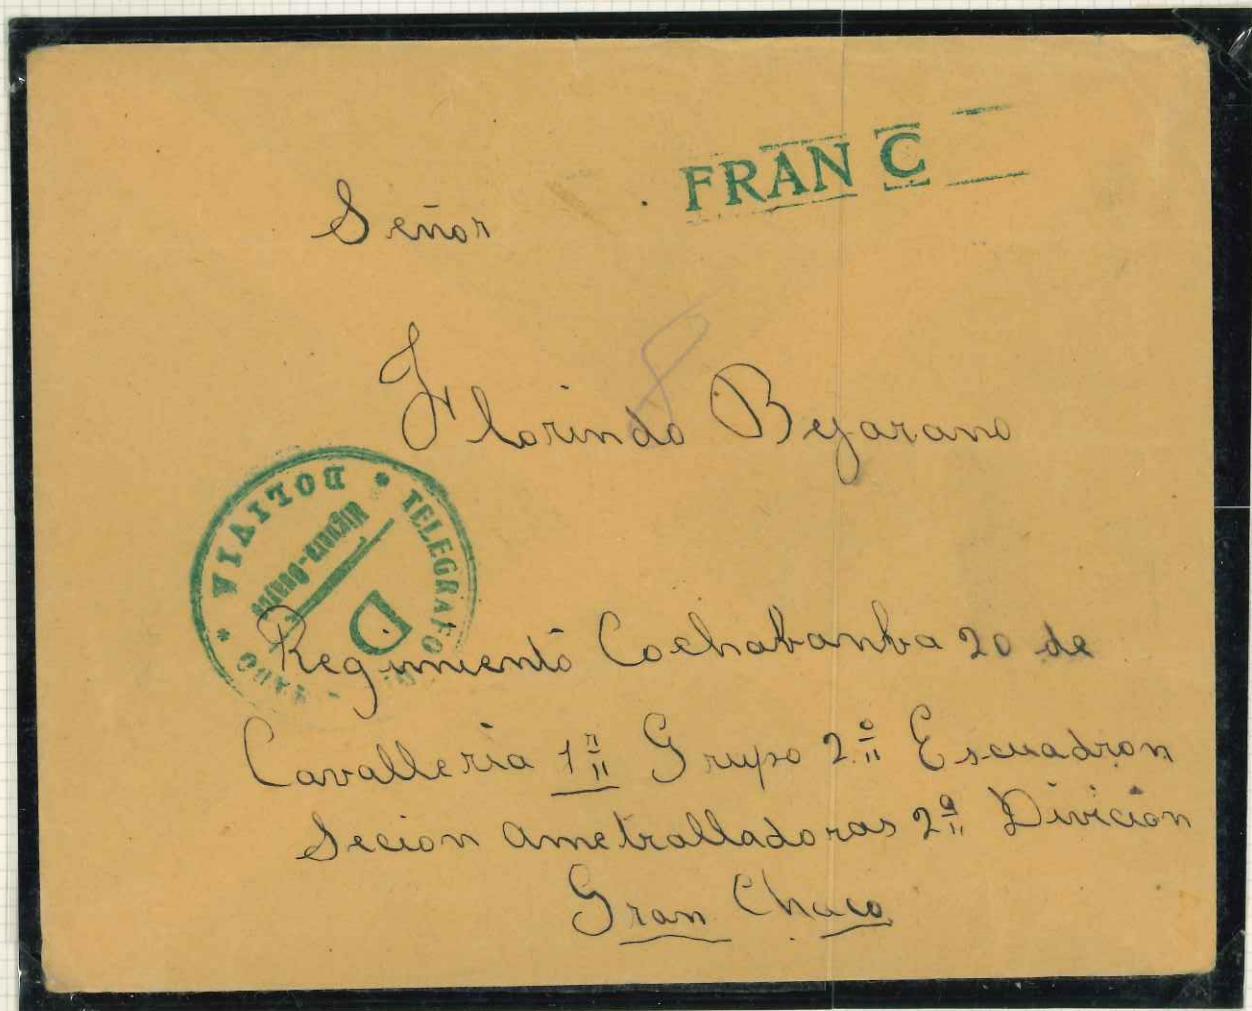 FRAN C
Señor
8
Florindo Bejarano
BOLIVIA * TELEGRAFO
D
Regimiento Cochabanba 20 de
Cavalleria 1r Grupo 2.o Escuadron
Secion ametralladoras 2a Divicion
Gran Chaco